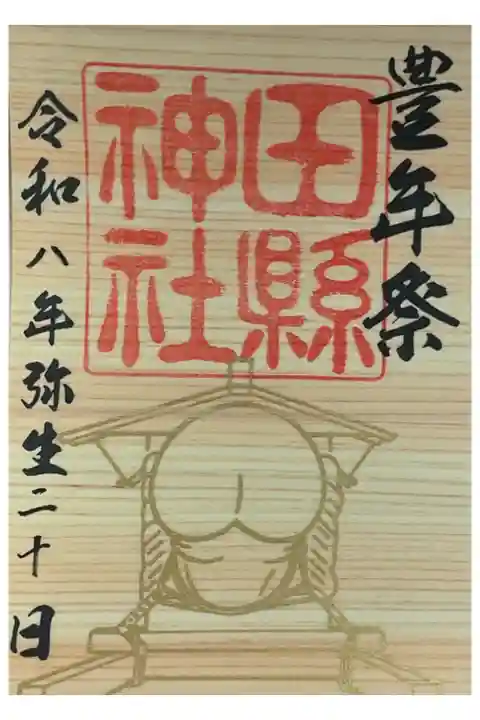 豊年祭
田縣
神社
令和八年弥生二十日